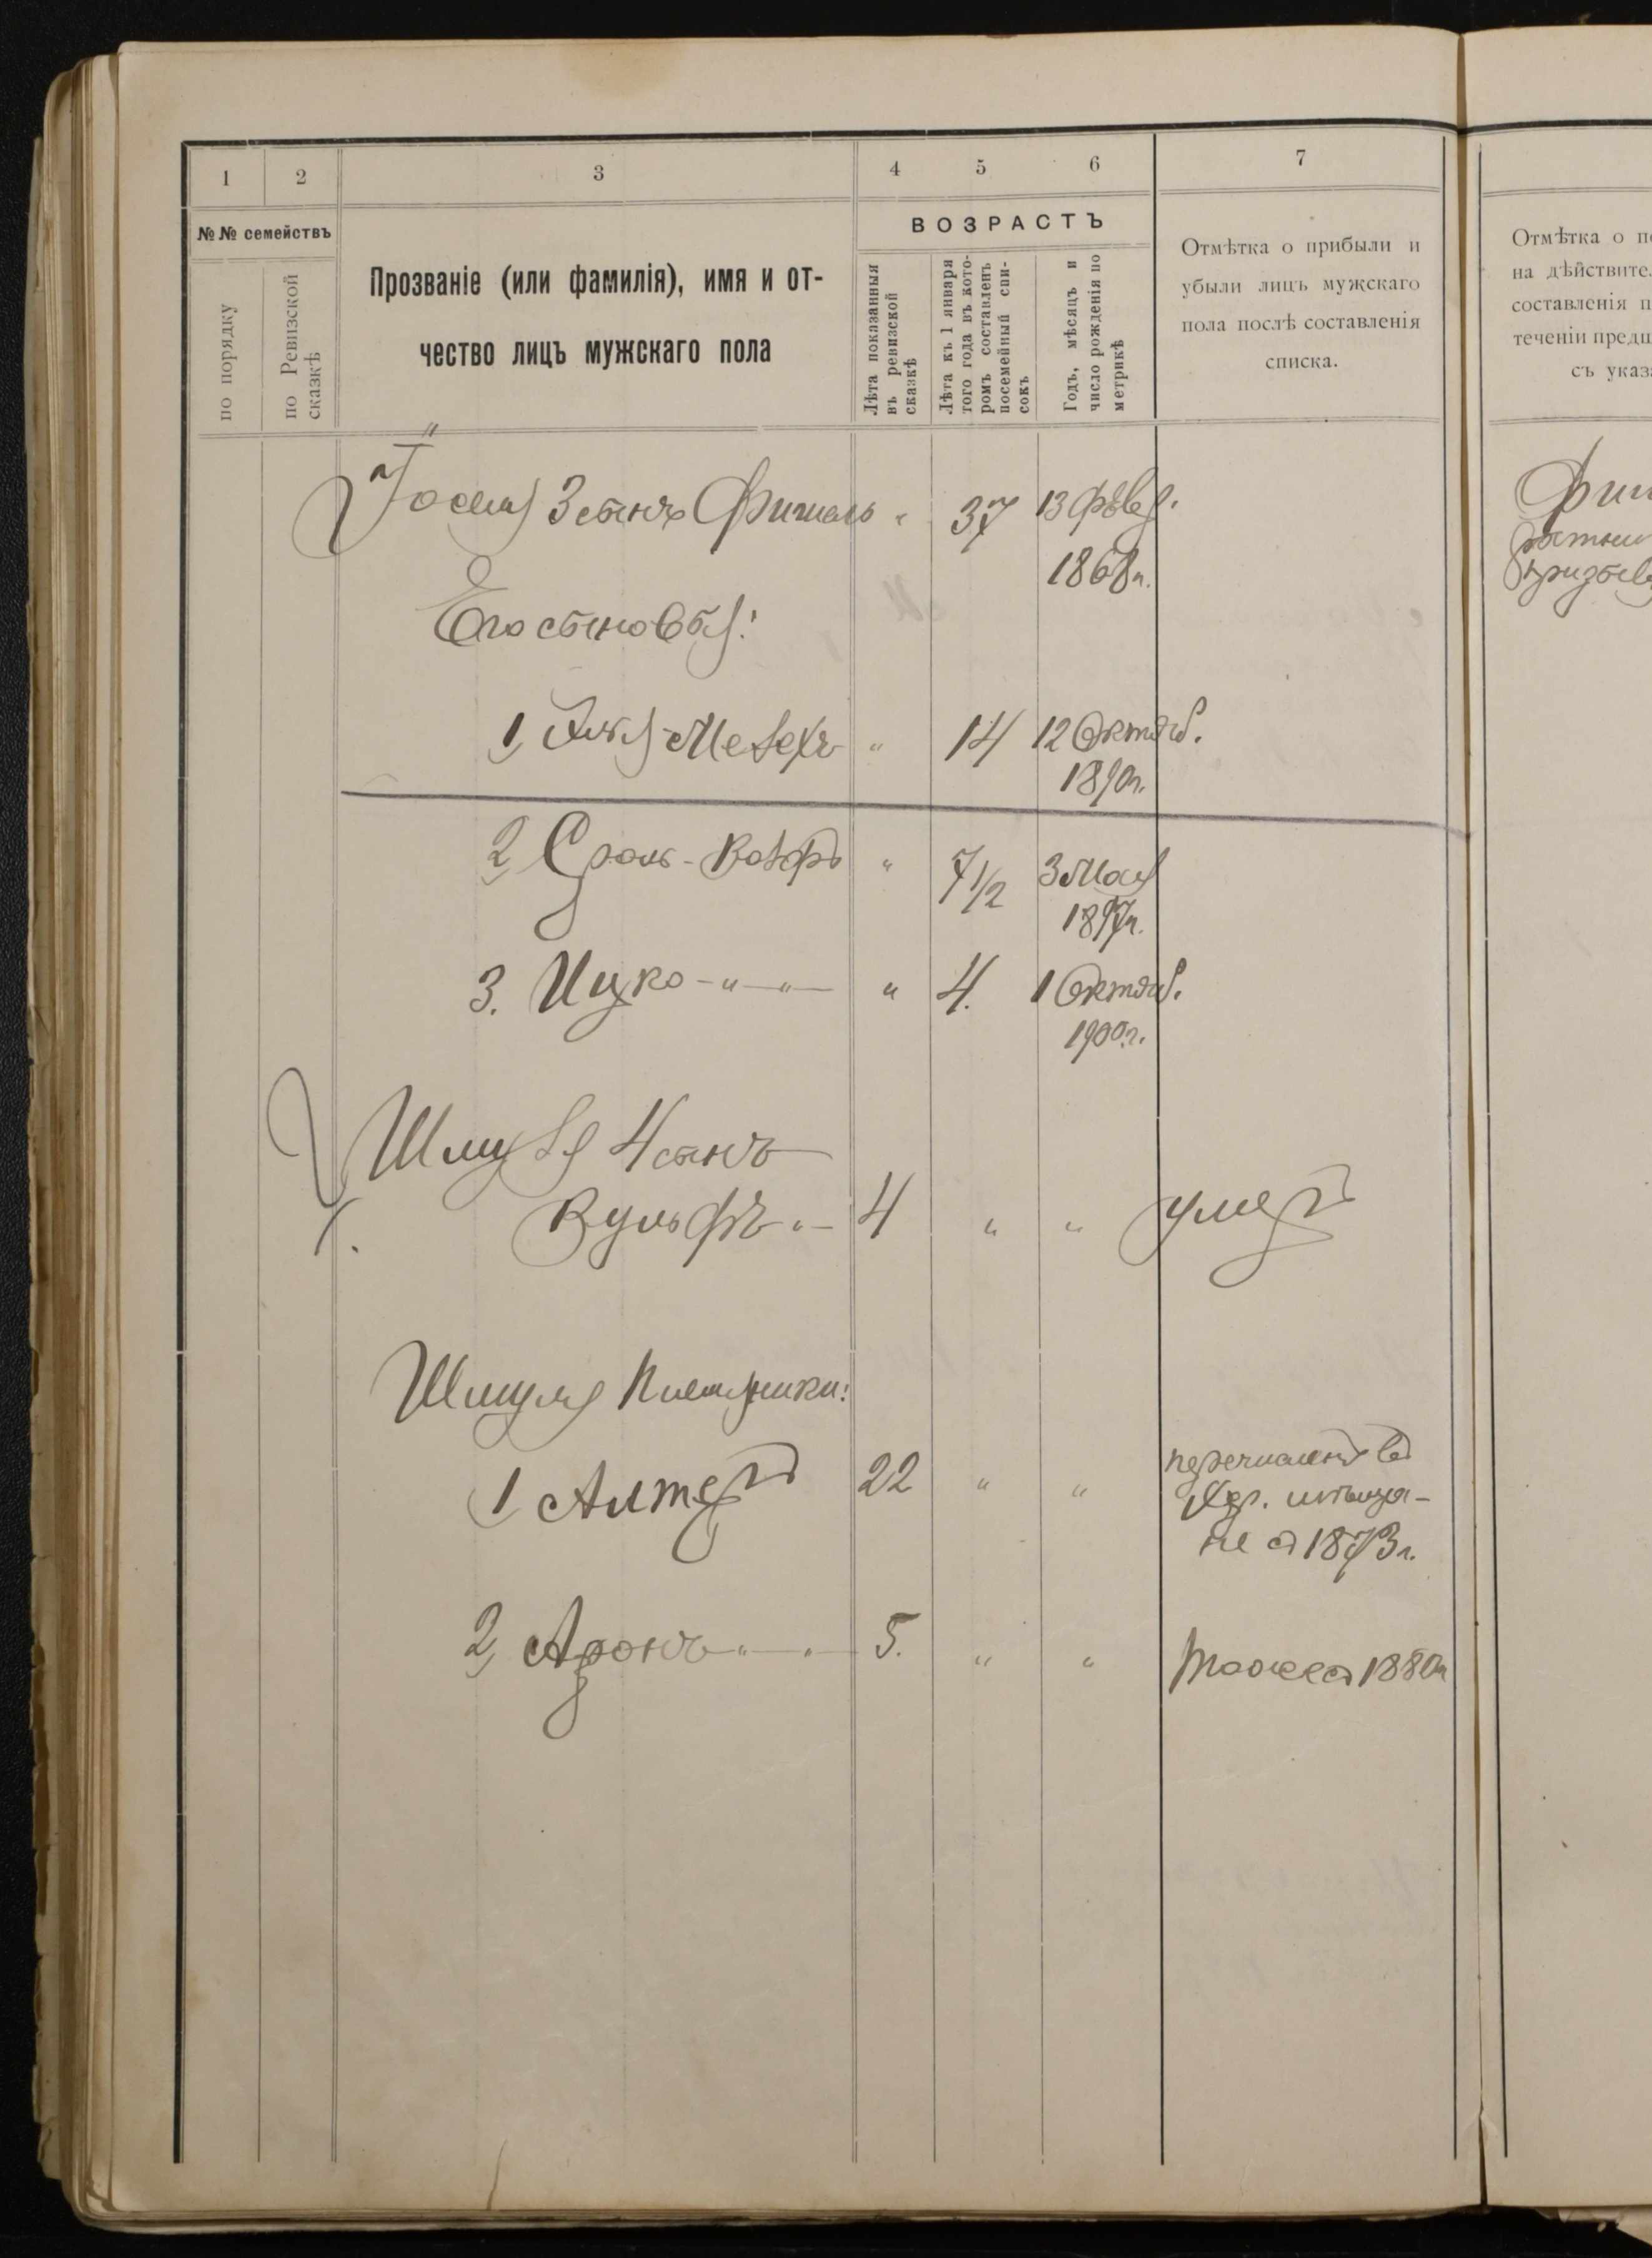 1 2 3 4 5 6 7
№№ семействъ
по порядку
по Ревизской
сказкѣ
Прозваніе (или фамилія), имя и от-
чество лицъ мужскаго пола
ВОЗРАСТЪ
Лѣта показанныя
въ ревизской
сказкѣ
Лѣта къ 1 января
того года въ кото-
ромъ составленъ
посемейный спи-
сокъ
Годъ, мѣсяцъ и
число рожденія по
метрикѣ
Отмѣтка о прибыли и
убыли лицъ мужскаго
пола послѣ составленія
списка.
Іосля 3 сынъ Фишель " 37 13 Февр.
1868 г.
Его сыновья:
1, -Мелехъ " 14 12 Октяб.
1890 г.
2, Сроль-Вольфъ " 7 1/2 3 Мая
1897 г.
3. Ицко - " - " - " 4. 1 Октяб.
1900 г.
Шмуля 4 сынъ
Вульфъ " - 4 " " умеръ
Шмуля племянники:
1, Алтеръ 22 " " перечисленъ въ
мѣща-
не съ 1873 г.
2, Аронъ " - " - 5. " " тоже съ 1880 г
Отмѣтка о
на дѣйствите
составленія
теченіи
съ